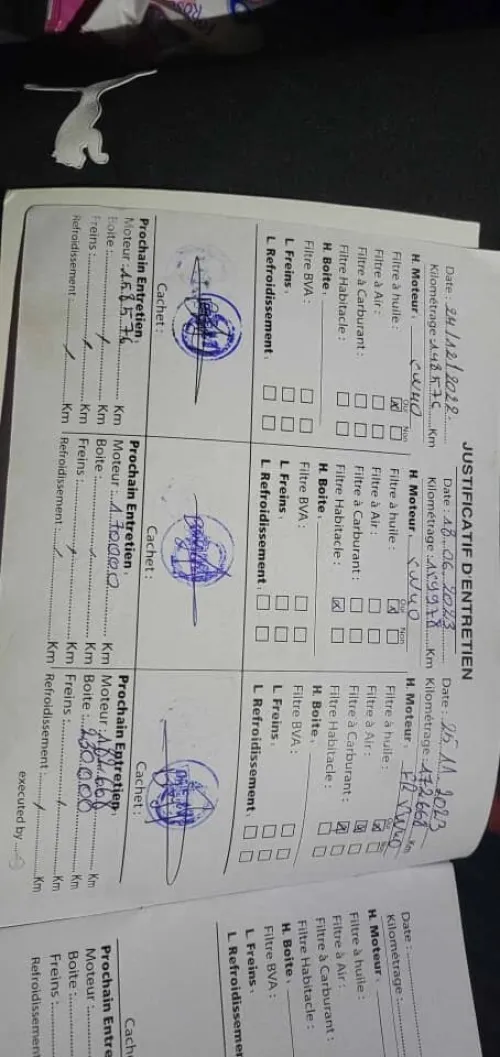 JUSTIFICATIF D'ENTRETIEN
Date : 24/12/2022
Kilométrage : 148576 Km
H. Moteur : 5W40
Oui Non
Filtre à huile :
Filtre à Air :
Filtre à Carburant :
Filtre Habitacle :
H. Boite :
Filtre BVA :
L Freins :
L Refroidissement :
Cachet :
Prochain Entretien :
Moteur : 158576 Km
Boite : / Km
Freins : / Km
Refroidissement : / Km
Date : 18.06.2023
Kilométrage : 159978 Km
H. Moteur : 5W40
Oui Non
Filtre à huile :
Filtre à Air :
Filtre à Carburant :
Filtre Habitacle :
H. Boite :
Filtre BVA :
L Freins :
L Refroidissement :
Cachet :
Prochain Entretien :
Moteur : 170000 Km
Boite : / Km
Freins : / Km
Refroidissement : / Km
Date : 25.11.2023
Kilométrage : 172668 Km
H. Moteur : 5W40
Filtre à huile :
Filtre à Air :
Filtre à Carburant :
Filtre Habitacle :
H. Boite :
Filtre BVA :
L Freins :
L Refroidissement :
Cachet :
Prochain Entretien :
Moteur : Km
Boite : Km
Freins : / Km
Refroidissement : / Km
executed by
Date :
Kilométrage :
H. Moteur :
Filtre à huile :
Filtre à Air :
Filtre à Carburant :
Filtre Habitacle :
H. Boite :
Filtre BVA :
L Freins :
L Refroidissement
Cache
Prochain Entre
Moteur :
Boite :
Freins :
Refroidissement